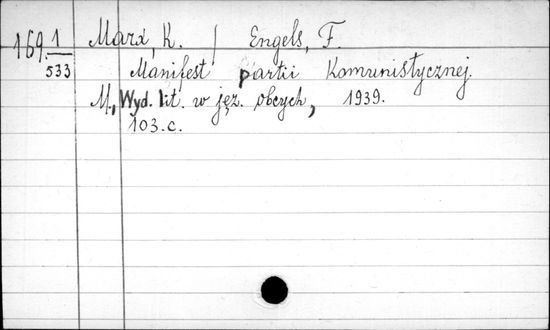 169.1/533 Marx, K. / Engels, F.
Manifest partii Komunistycznej.
M., Wyd. lit. w jęz. obcych, 1939.
103.c.